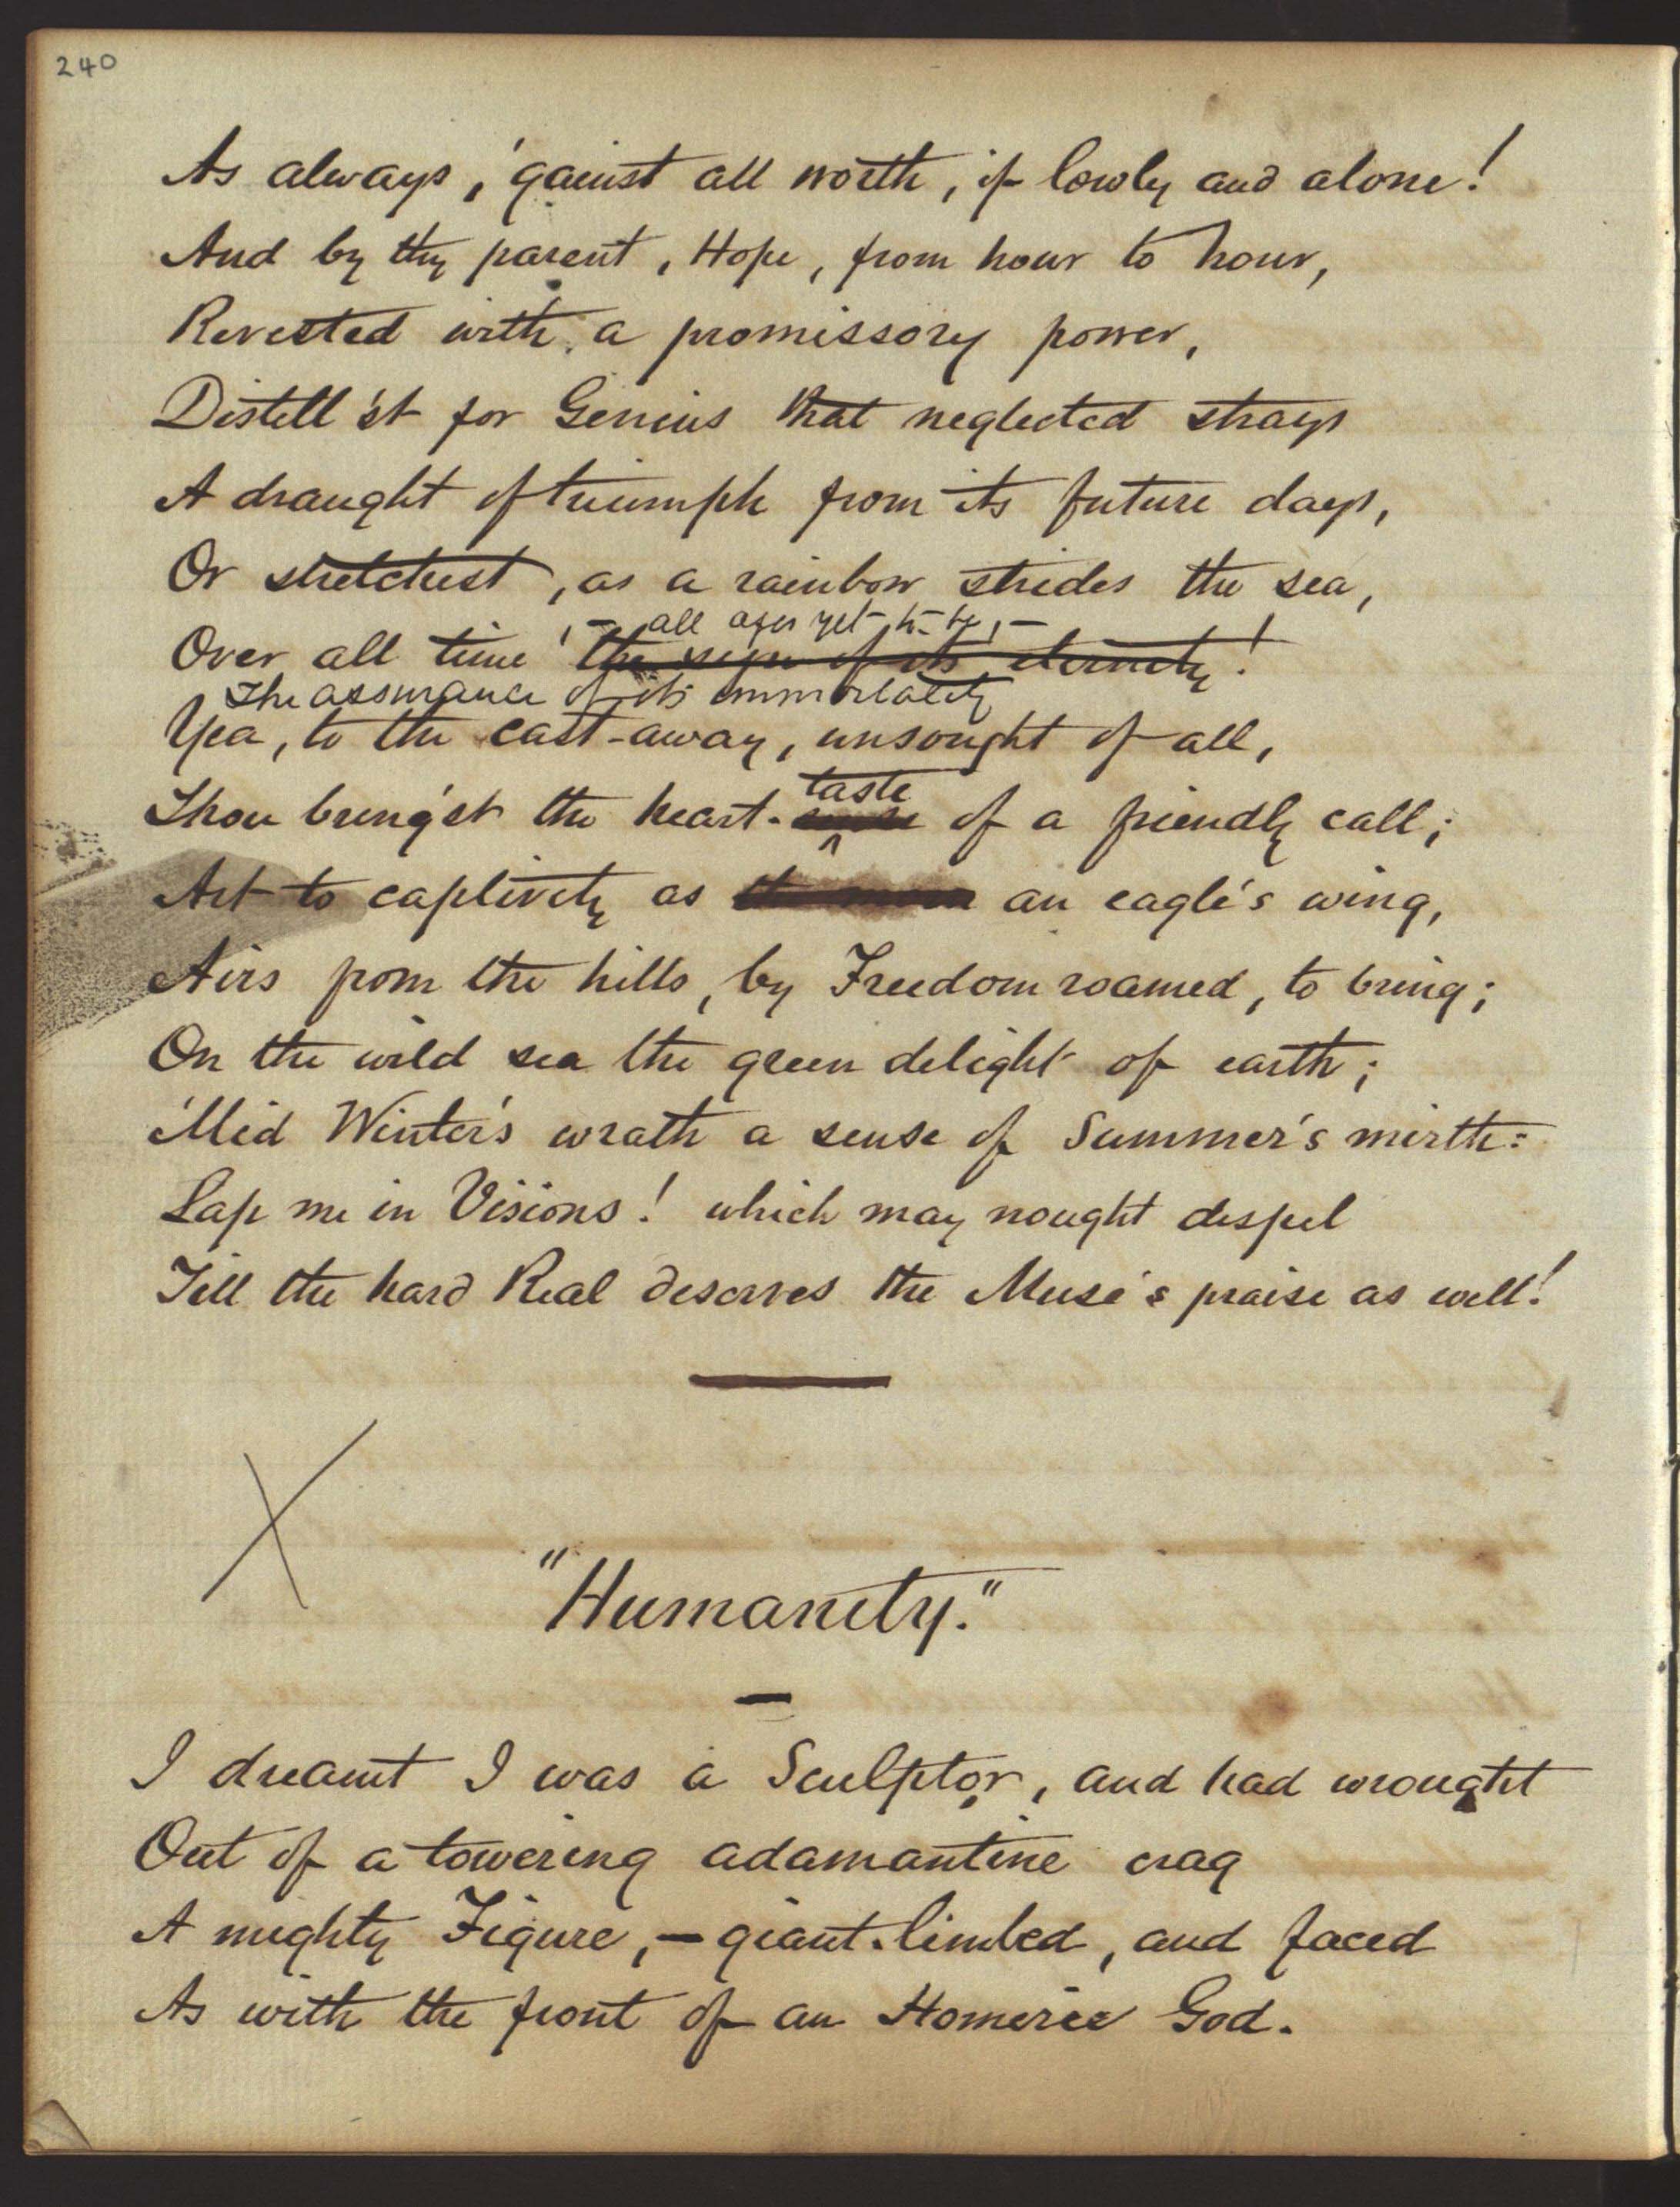 240
As always, 'gainst all worth, if lowly and alone!
And by thy parent, Hope, from hour to hour,
Revested with a promissory power,
Distill'st for Genius that neglected strays
A draught of triumph from its future days,
Or stretchest, as a rainbow strides the sea,
– all ages yet to be, –
Over all time, the sign of its eternity!
The assurance of its immortality
Yea, to the cast-away, unsought of all,
taste
Thou bring'st the heart- of a friendly call;
Art to captivity as an eagle's wing,
Airs from the hills, by Freedom roamed, to bring;
On the wild sea the green delight of earth;
'Mid Winter's wrath a sense of Summer's mirth:
Lap me in Visions! which may nought dispel
Till the hard Real deserves the Muse's praise as well!
X
"Humanity."
I dreamt I was a Sculptor, and had wrought
Out of a towering adamantine crag
A mighty Figure, – giant-limbed, and faced
As with the front of an Homeric God.